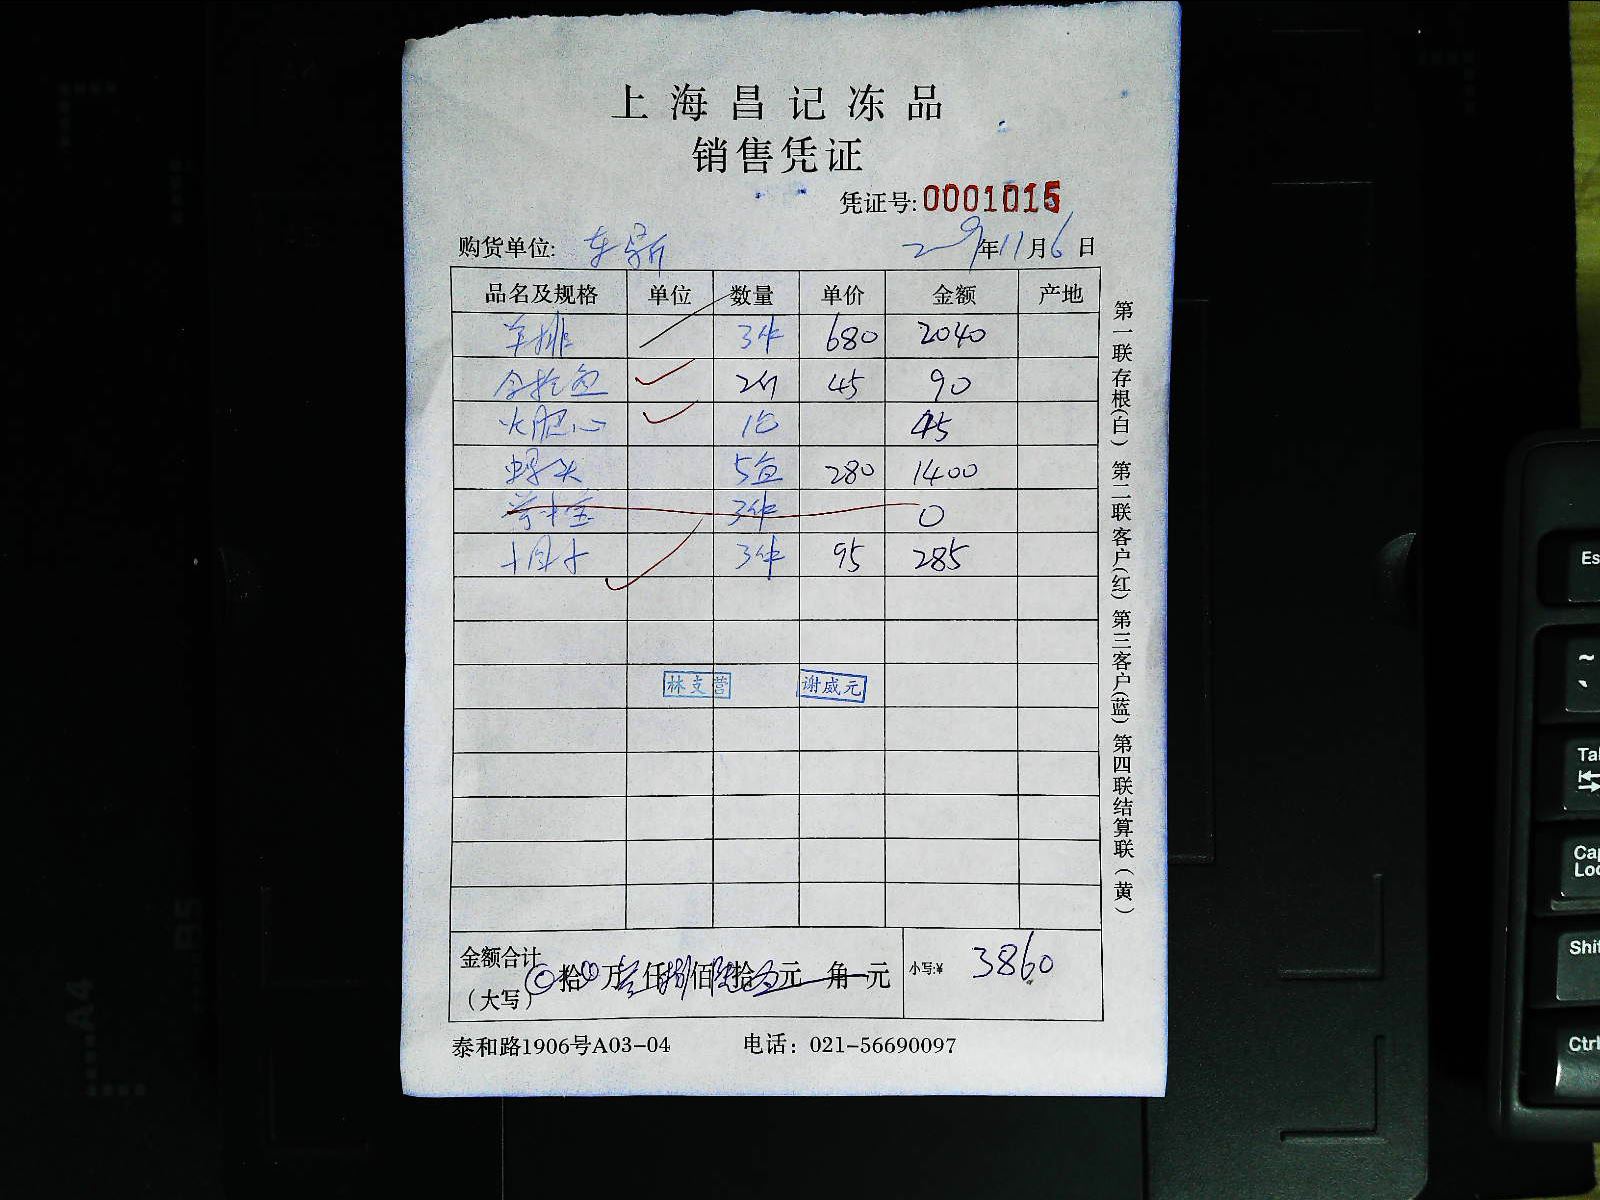 上海昌记冻品
销售凭证
凭证号:0001015
购货单位: 年11月6日
品名及规格 单位 数量 单价 金额 产地
羊排 3件 680 2040
45 90
45
5 280 1400
3件 0
3件 95 285
林支营 谢威元
金额合计
拾 万叁仟捌佰陆拾 元 角 元
(大写)
小写:¥ 3860
泰和路1906号A03-04 电话: 021-56690097
第一联存根(白) 第二联客户(红) 第三客户(蓝) 第四联结算联(黄)
A4
B5
Es
~
Tab
Caps
Loc
Shif
Ctrl